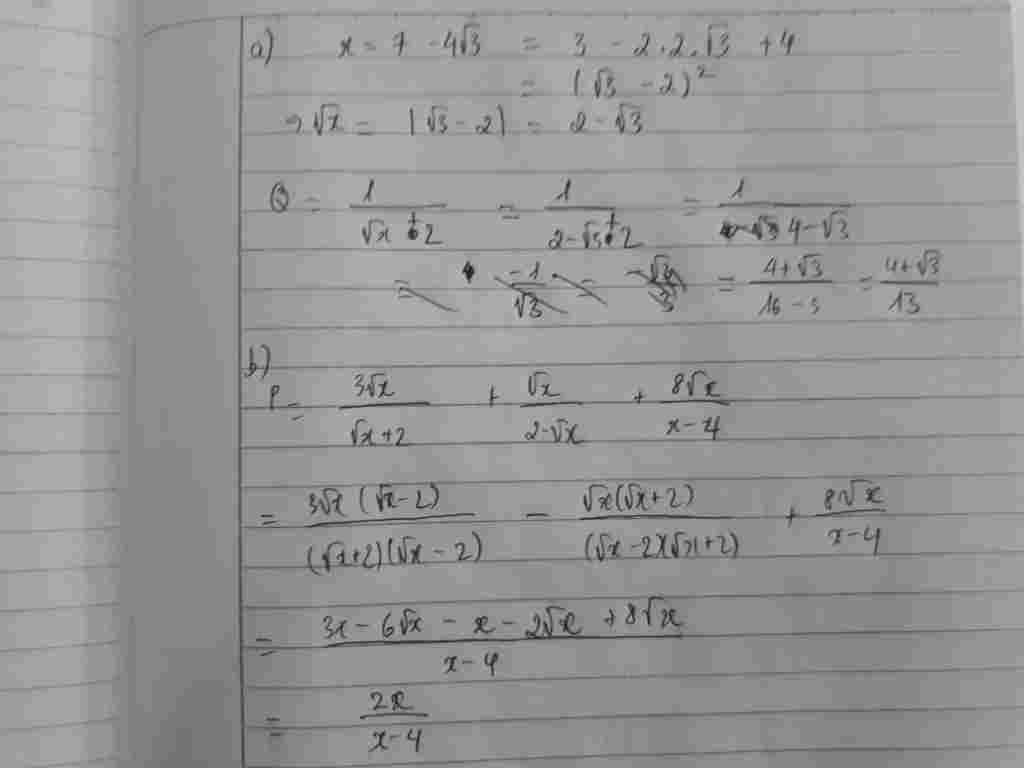 a) x = 7 - 4√3 = 3 - 2.2.√3 + 4
= (√3 - 2)²
→ √x = |√3 - 2| = 2 - √3
Q = 1/(√x + 2) = 1/(2 - √3 + 2) = 1/(4 - √3)
= (4 + √3)/(16 - 3) = (4 + √3)/13
b)
P = 3√x/(√x + 2) + √x/(2 - √x) + 8√x/(x - 4)
= 3√x(√x - 2)/((√x + 2)(√x - 2)) - √x(√x + 2)/((√x - 2)(√x + 2)) + 8√x/(x - 4)
= (3x - 6√x - x - 2√x + 8√x)/(x - 4)
= 2x/(x - 4)